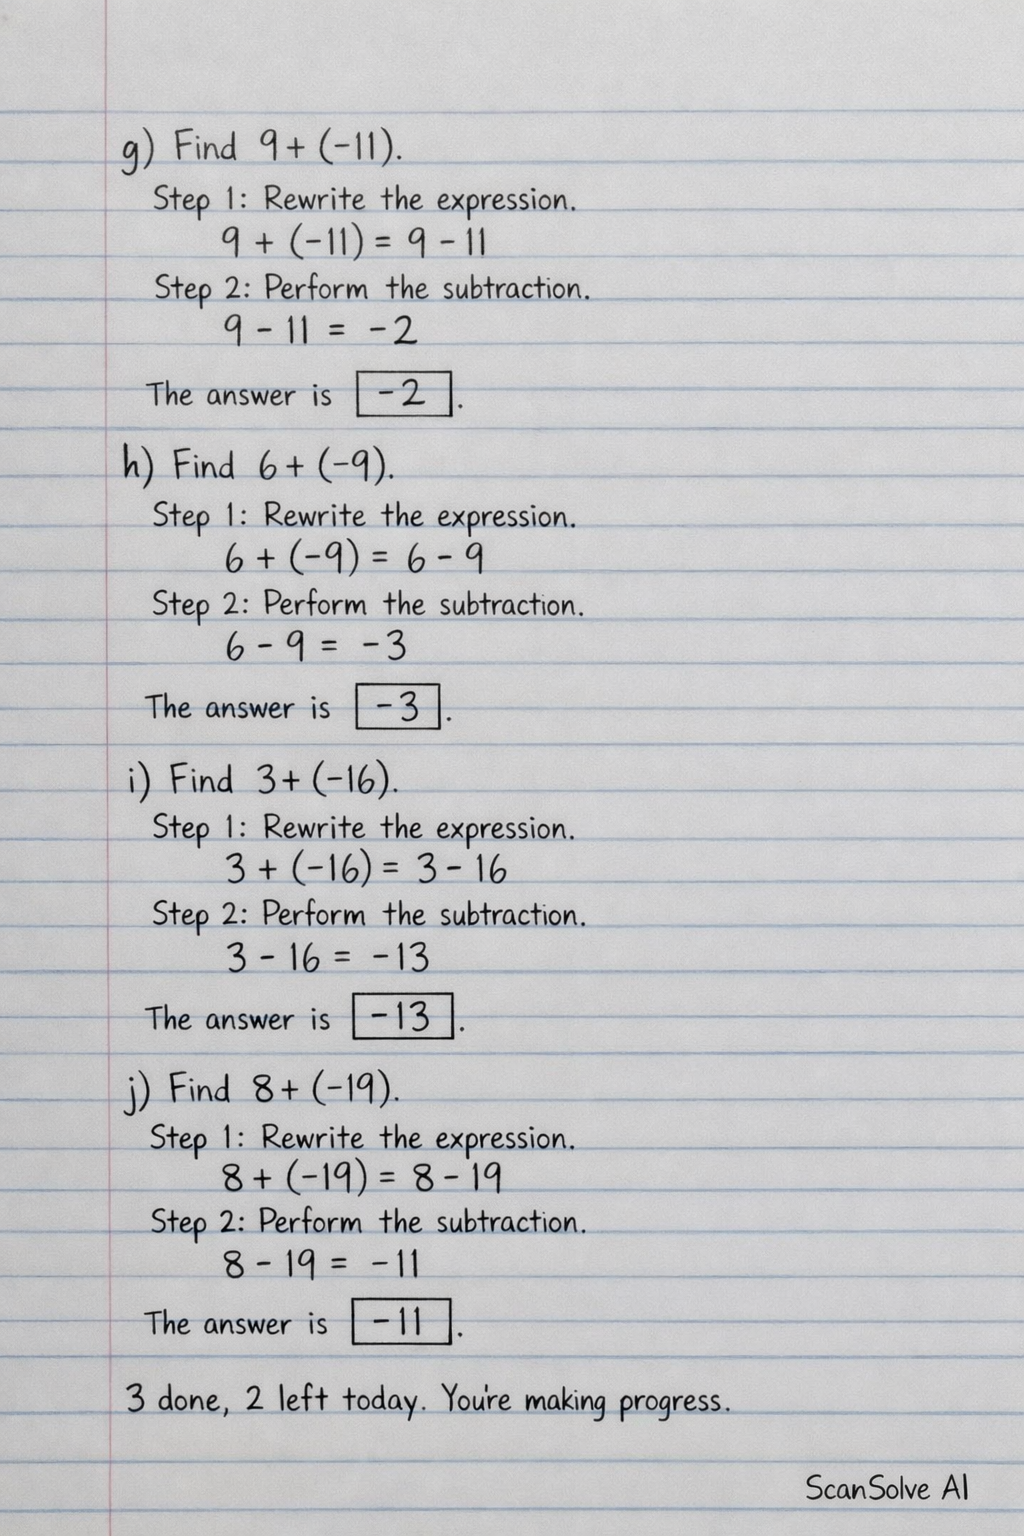 g) Find 9 + (-11).
Step 1: Rewrite the expression.
9 + (-11) = 9 - 11
Step 2: Perform the subtraction.
9 - 11 = -2
The answer is -2.
h) Find 6 + (-9).
Step 1: Rewrite the expression.
6 + (-9) = 6 - 9
Step 2: Perform the subtraction.
6 - 9 = -3
The answer is -3.
i) Find 3 + (-16).
Step 1: Rewrite the expression.
3 + (-16) = 3 - 16
Step 2: Perform the subtraction.
3 - 16 = -13
The answer is -13.
j) Find 8 + (-19).
Step 1: Rewrite the expression.
8 + (-19) = 8 - 19
Step 2: Perform the subtraction.
8 - 19 = -11
The answer is -11.
3 done, 2 left today. You're making progress.
ScanSolve AI